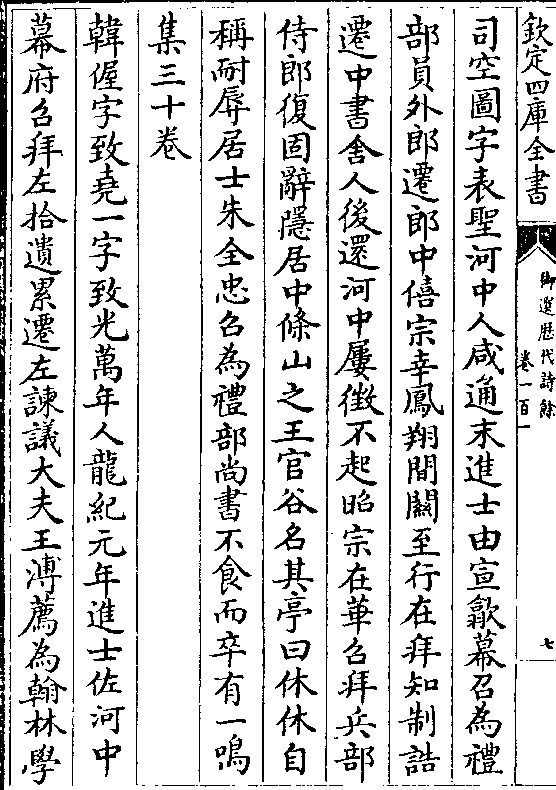 欽定四庫全書
御選歴代詩餘
卷一百一
七
司空圖字表聖河中人咸通末進士由宣歙幕召為禮
部員外郎遷郎中僖宗幸鳳翔間關至行在拜知制誥
遷中書舎人後還河中屢徴不起昭宗在華召拜兵部
侍郎復固辭隱居中條山之王官谷名其亭曰休休自
稱耐辱居士朱全忠召為禮部尚書不食而卒有一鳴
集三十卷
韓偓字致堯一字致光萬年人龍紀元年進士佐河中
幕府召拜左拾遺累遷左諫議大夫王溥薦為翰林學